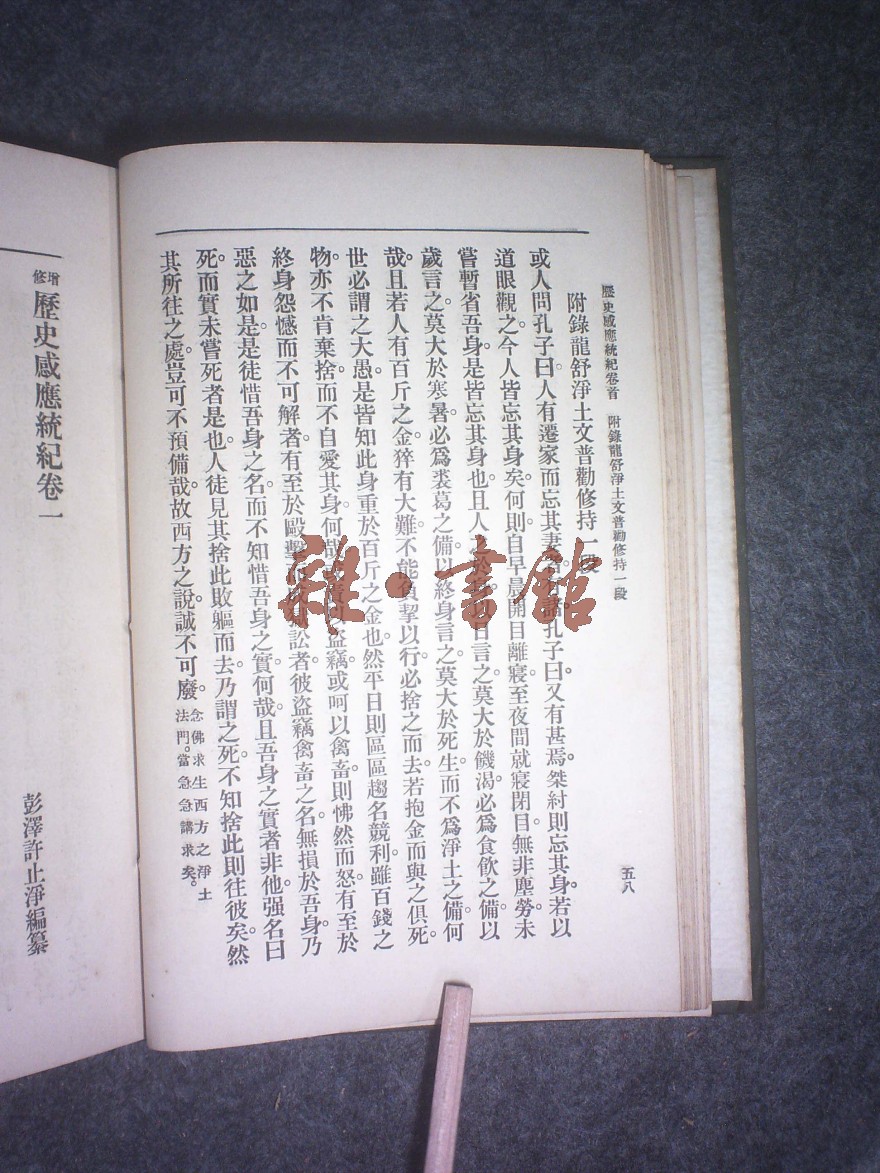 歷史感應統紀卷首 附錄龍舒淨土文普勸修持一段 五八
附錄龍舒淨土文普勸修持一段
或人問孔子曰。人有遷家而忘其妻者。有諸。孔子曰。又有甚焉。桀紂則忘其身。若以
道眼觀之。今人皆忘其身矣。何則。自早晨開目離寢。至夜間就寢閉目。無非塵勞。未
嘗暫省吾身。是皆忘其身也。且人之於身。以日言之。莫大於饑渴。必爲食飲之備。以
歲言之。莫大於寒暑。必爲裘葛之備。以終身言之。莫大於死生。而不爲淨土之備。何
哉。且若人有百斤之金。猝有大難。不能負挈以行。必捨之而去。若抱金而與之俱死。
世必謂之大愚。是皆知此身重於百斤之金也。然平日則區區趨名競利。雖百錢之
物。亦不肯棄捨。而不自愛其身。何哉。以盜竊。或呵以禽畜。則怫然而怒。有至於
終身怨憾而不可解者。有至於毆擊訟者。彼盜竊禽畜之名。無損於吾身。乃
惡之如是。是徒惜吾身之名。而不知惜吾身之實。何哉。且吾身之實者非他。强名曰
死。而實未嘗死者是也。人徒見其捨此敗軀而去。乃謂之死。不知捨此則往彼矣。然
其所往之處。豈可不預備哉。故西方之說。誠不可廢。念佛求生西方之淨土
法門。當急急講求矣。
增修歷史感應統紀卷一
彭澤許止淨編纂
雜·書館